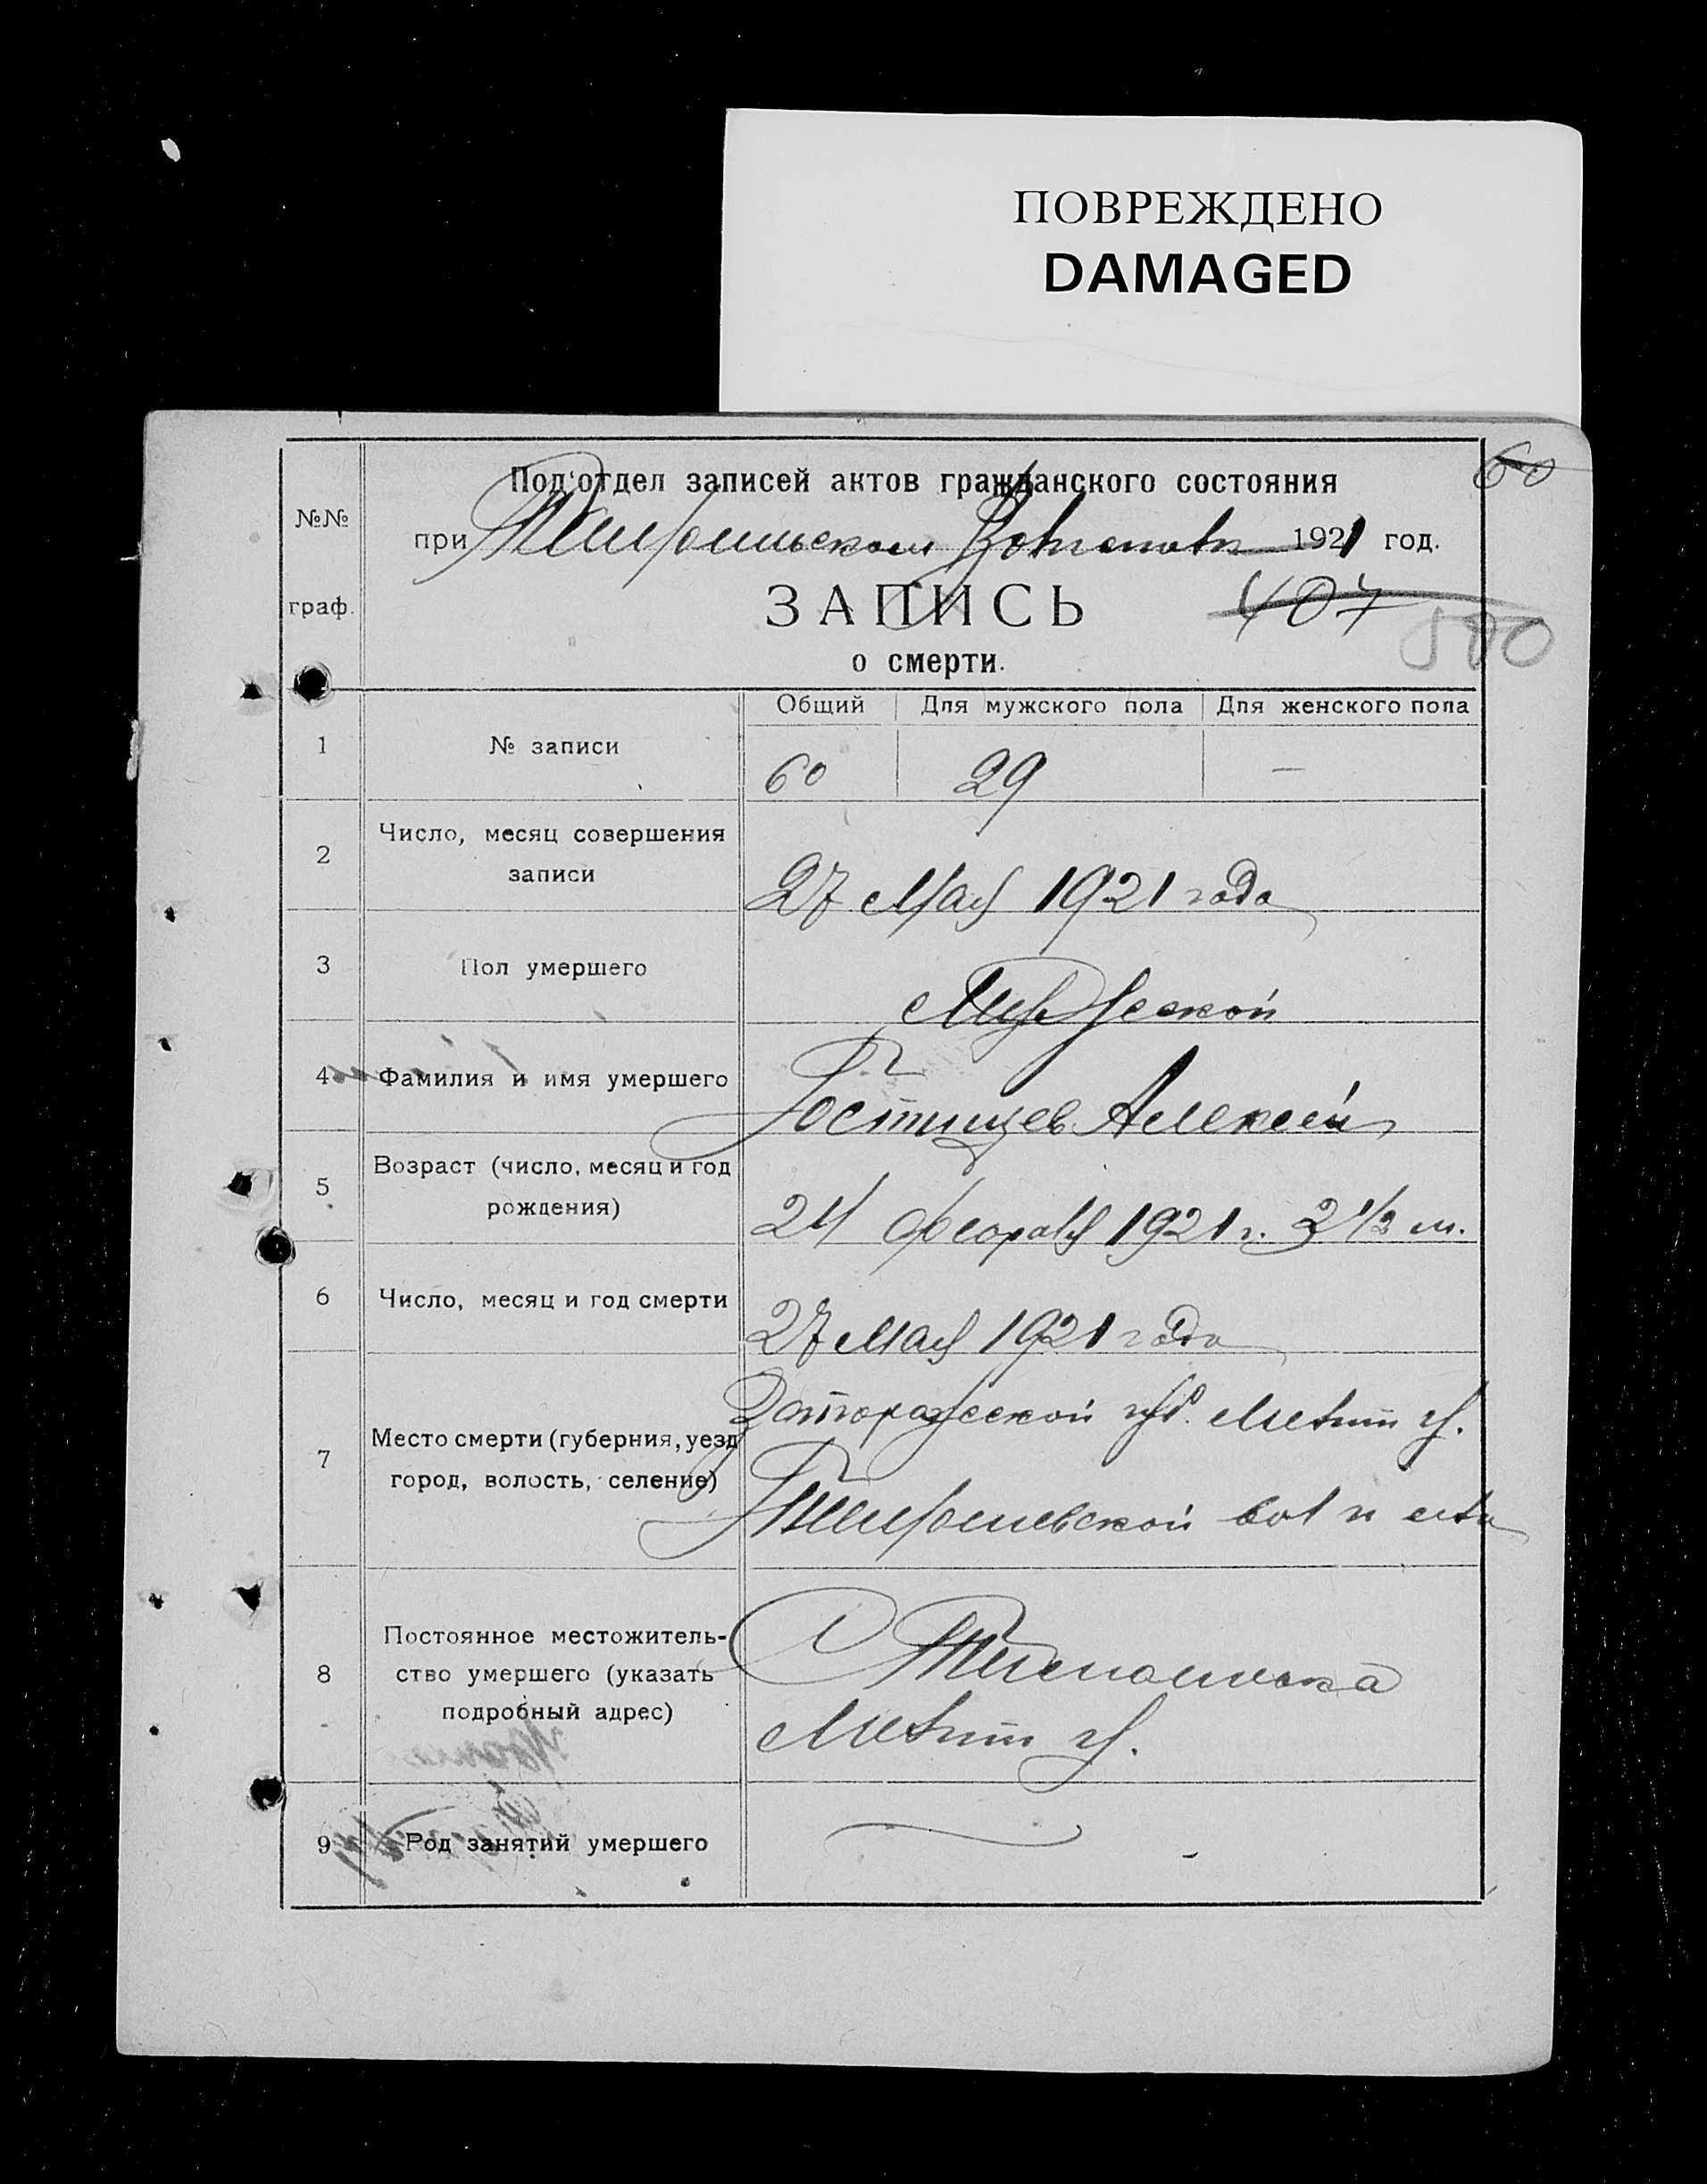 ПОВРЕЖДЕНО
DAMAGED
60
Под'отдел записей актов гражданского состояния
№№ при 1921 год.
граф. ЗАПИСЬ 407
500
о смерти.
Общий Для мужского пола Для женского пола
1 № записи 60 29 —
2 Число, месяц совершения
записи 27 Мая 1921 года
3 Пол умершего Мужеской
4 Фамилия и имя умершего Гостищев Алексей
5 Возраст (число, месяц и год
рождения) 24 февраля 1921 г. 2 1/2 м.
6 Число, месяц и год смерти 27 Мая 1921 года
Запорожеской губ. Мелит у.
7 Место смерти (губерния, уезд
город, волость, селение)
вол и села
8 Постоянное местожитель-
ство умершего (указать
подробный адрес)
Мелит у.
9 Род занятий умершего